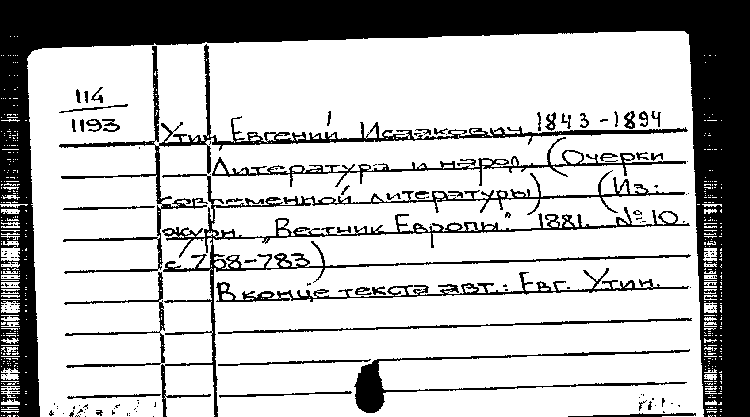 114
1193
Утин, Евгений Исаакович, 1843-1894
Литература и народ. (Очерки
современной литературы) (Из:
журн. „Вестник Европы". 1881. № 10.
с. 758-783)
В конце текста авт.: Евг. Утин.